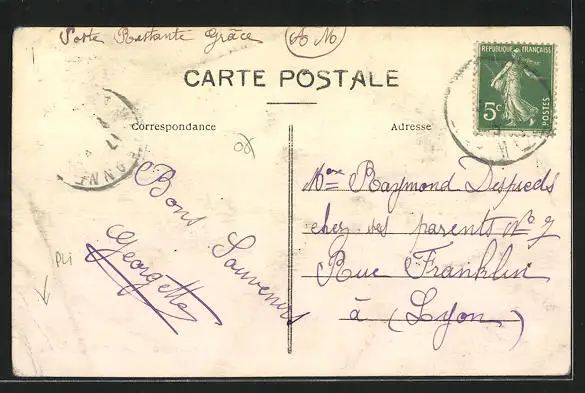 Poste Restante Grâce (A M)
CARTE POSTALE
RÉPUBLIQUE FRANÇAISE
5c
POSTES
Correspondance
Adresse
Bons Souvenirs
Georgette
Mme Raymond Despieds
chez ses parents No 7
Rue Franklin
à (Lyon)